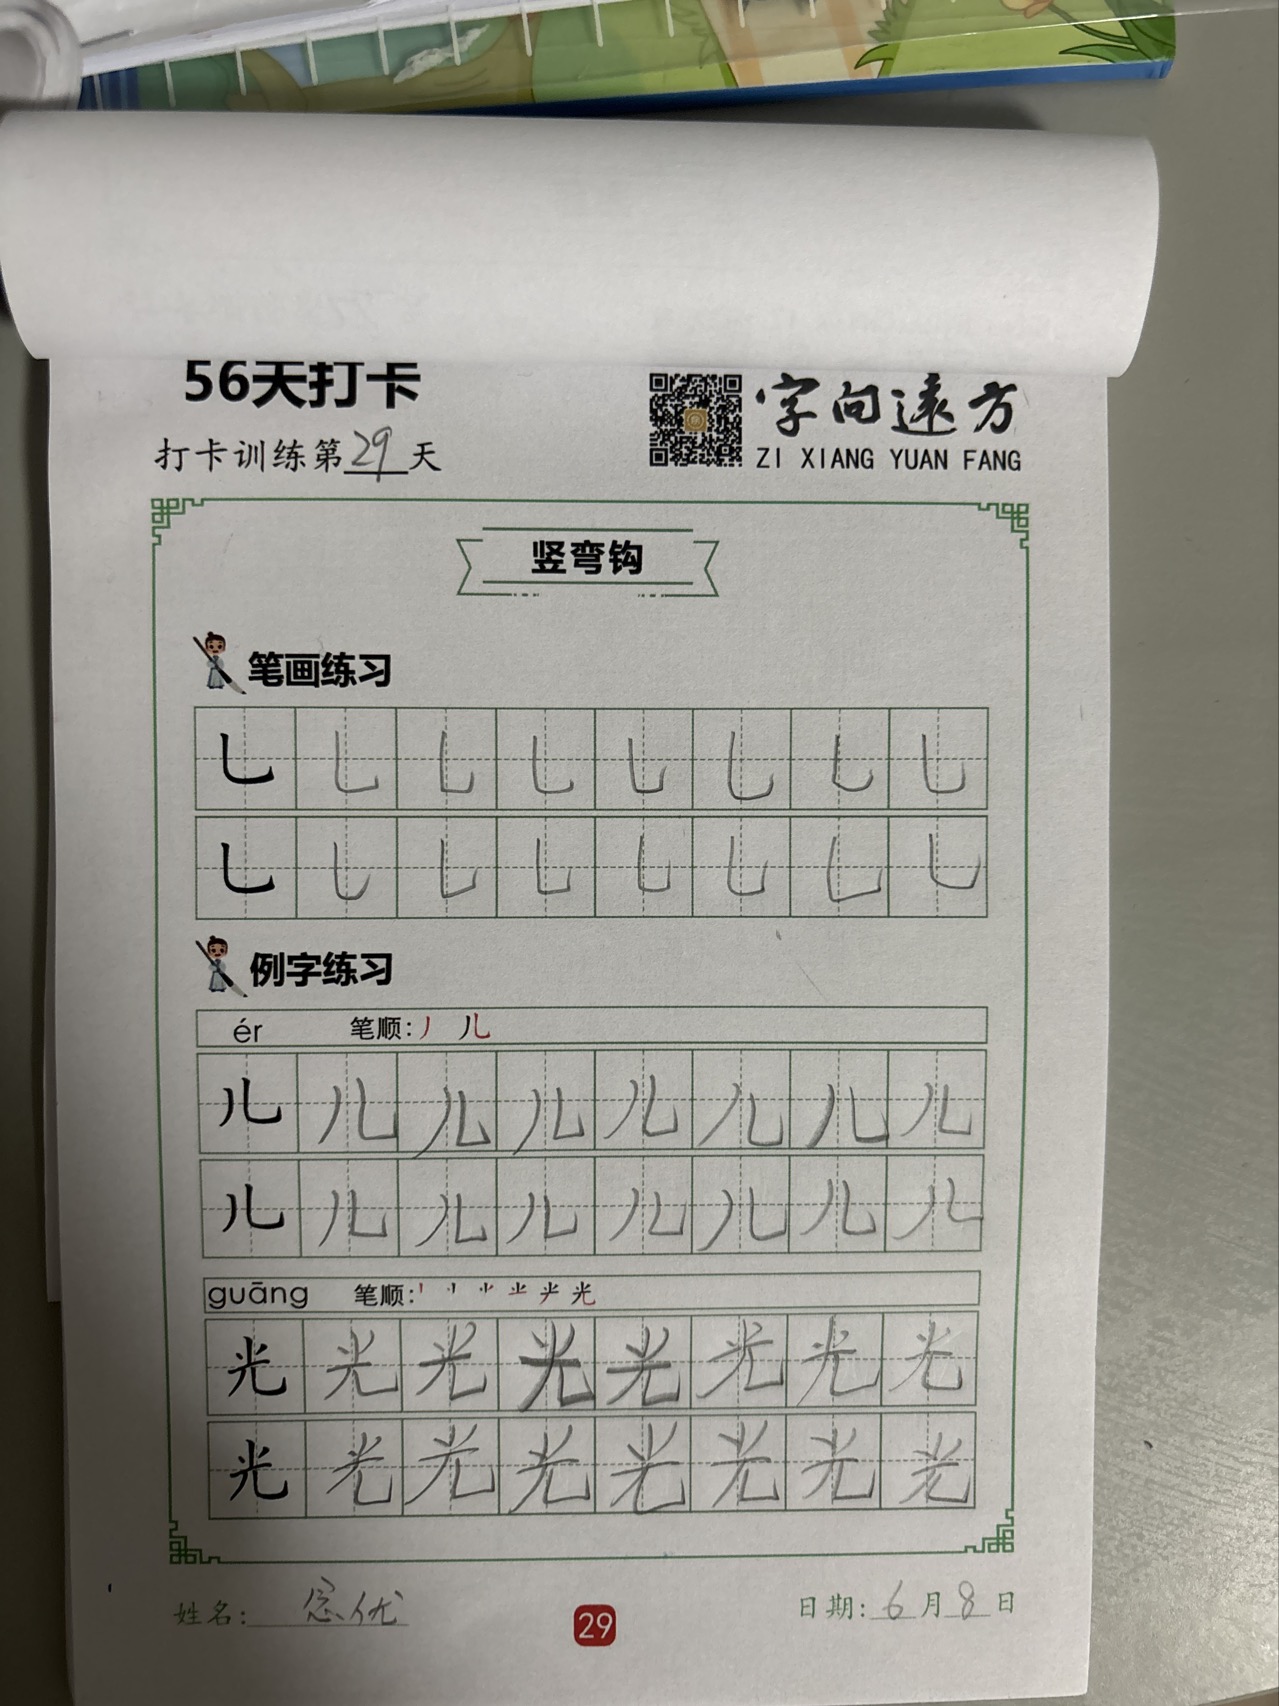 56天打卡
打卡训练第29天
字向遠方
ZI XIANG YUAN FANG
竖弯钩
笔画练习
乚 乚 乚 乚 乚 乚 乚 乚
乚 乚 乚 乚 乚 乚 乚 乚
例字练习
ér 笔顺：丿 儿
儿 儿 儿 儿 儿 儿 儿 儿
儿 儿 儿 儿 儿 儿 儿 儿
guāng 笔顺：
光 光 光 光 光 光 光 光
光 光 光 光 光 光 光 光
姓名： 优
29
日期：6月8日